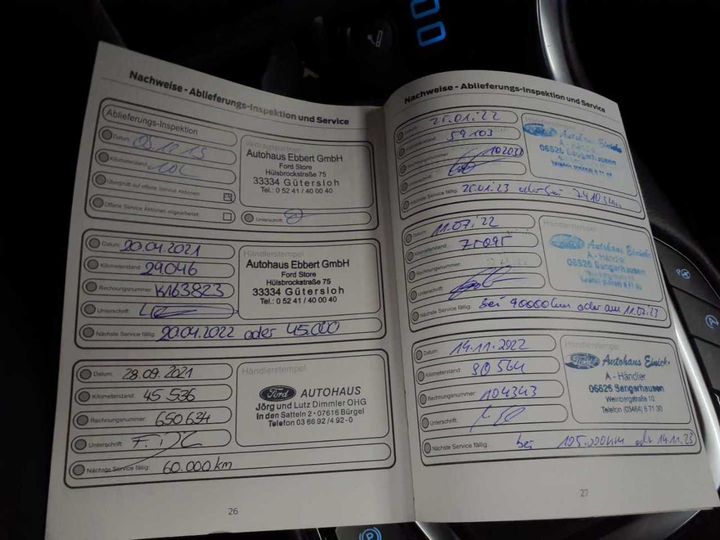 Nachweise - Ablieferungs-Inspektion und Service
Ablieferungs-Inspektion
Datum:
Kilometerstand: 100
Übergrüft auf offene Service Aktionen:
Offene Service Aktionen abgearbeitet:
Autohaus Ebbert GmbH
Ford Store
Hülsbrockstraße 75
33334 Gütersloh
Tel.: 0 52 41 / 40 00 40
Unterschrift:
Datum: 20.04.2021
Kilometerstand: 29046
Rechnungsnummer: K163823
Unterschrift:
Nächste Service fällig: 20.04.2022 oder 45.000
Händlerstempel
Autohaus Ebbert GmbH
Ford Store
Hülsbrockstraße 75
33334 Gütersloh
Tel.: 0 52 41 / 40 00 40
Datum: 28.09.2021
Kilometerstand: 45.536
Rechnungsnummer: 650634
Unterschrift:
Nächste Service fällig: 60.000 km
Händlerstempel
Ford AUTOHAUS
Jörg und Lutz Dimmler OHG
In den Satteln 2 - 07616 Bürgel
Telefon 03 66 92 / 4 92-0
26
Nachweise - Ablieferungs-Inspektion und Service
Datum: 25.01.22
59103
Nächste Service fällig: 25.01.23 oder bei 74103km
Autohaus
A - Händler
06526 Sangerhausen
Datum: 11.07.22
Kilometerstand: 75095
Rechnungsnummer:
Unterschrift:
Nächste Service fällig: bei 90000km oder am 11.07.23
Autohaus
A - Händler
06526 Sangerhausen
Datum: 14.11.2022
Kilometerstand: 89564
Rechnungsnummer: 104343
Unterschrift:
Nächste Service fällig: bei 105.000km od. 14.11.23
Händlerstempel
Ford Autohaus
A - Händler
06526 Sangerhausen
Weinbergstraße 10
Telefon (03464) 5 71 30
27